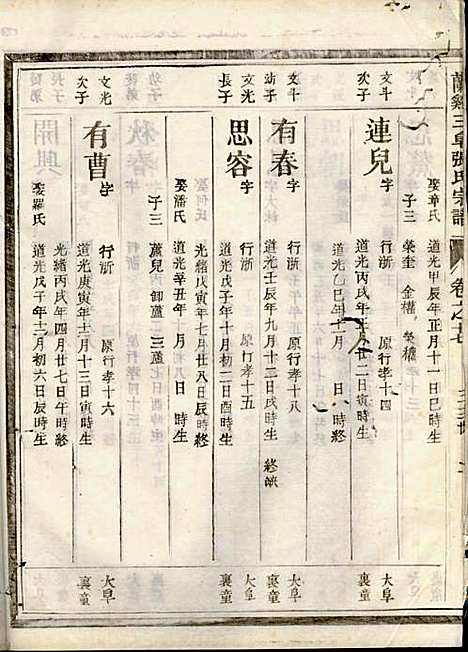 蘭谿三阜張氏宗譜 卷之七
娶章氏 道光甲辰年正月十一日巳時生
子三 榮奎 金權 榮權
文斗 次子 連兒 字 行浙 原行孝十四 大阜 裏童
道光丙戌年 月廿二日寅時生
道光乙巳年十二月 日 時生
文斗 幼子 有春 字 行浙 原行孝十八 大阜 裏童
道光壬辰年九月十三日戌時生 終缺
文光 長子 思容 字 行浙 原行孝十五 大阜 裏童
道光戊子年十月初二日酉時生
光緒戊寅年七月廿八日辰時終
娶潘氏 道光辛丑年 月 日 時生
子三 蘆兒 卸蘆 三蘆
文光 次子 有曹 字 行浙 原行孝十六 大阜 裏童
道光庚寅年十二月十三日寅時生
光緒丙戌年四月廿七日午時終
娶羅氏 道光戊子年十二月初六日辰時生